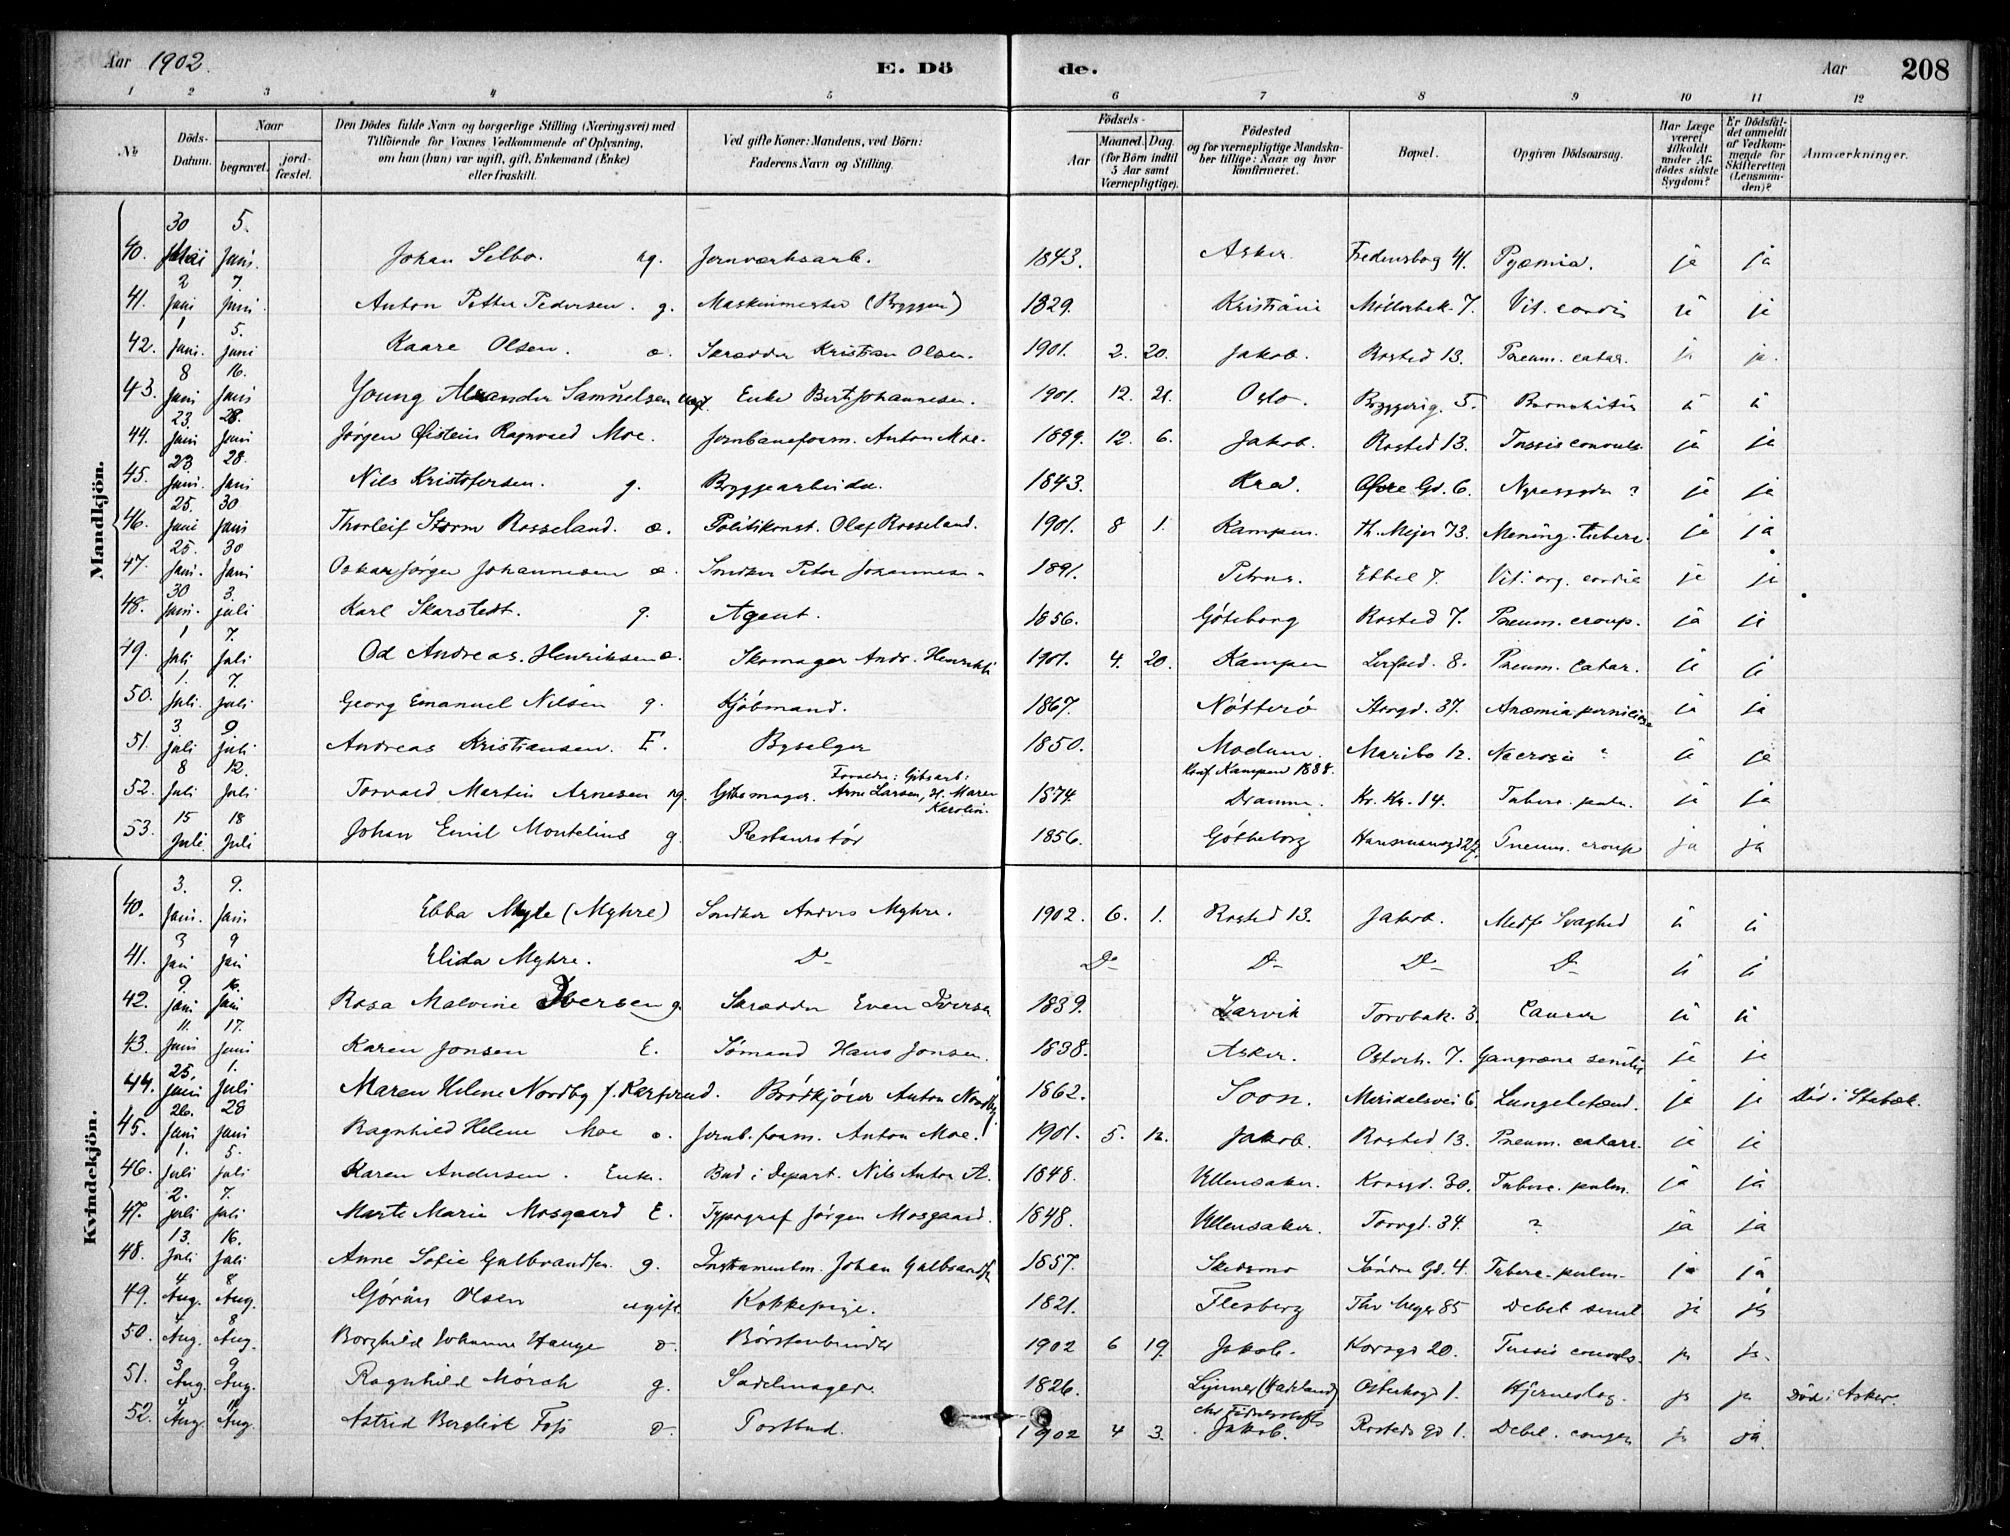 Aar 1902. E. Dö de. Aar 208
1 2 3 4 5 6 7 8 9 10 11 12
No Döds-Datum. Naar begravet. jord-fæstet. Den Dödes fulde Navn og borgerlige Stilling (Næringsvei) med Tilföiende for Voxnes Vedkommende af Oplysning, om han (hun) var ugift, gift, Enkemand (Enke) eller fraskilt. Ved gifte Koner: Mandens, ved Börn: Faderens Navn og Stilling. Födsels- Aar Maaned. Dag. (for Börn indtil 5 Aar samt Værnepligtige). Födested og for værnepligtige Mandskaber tillige: Naar og hvor konfirmeret. Bopæl. Opgiven Dödsaarsag. Har Læge været tilkaldt under Afdödes sidste Sygdom? Er Dödsfaldet anmeldt af Vedkommende for Skifteretten (Lensmanden)? Anmærkninger.
Mandkjön.
40. 30 Mai 5. Juni. Johan Selbo. ug. Jernværksarb. 1843. Asker. Fredensbog 41. Pyæmia. ja ja
41. 2 Juni 7. Juni. Anton Petter Pedersen. g. Maskinmester (Bryggeri) 1829. Kristiania Möllerbak. 7. Vit. cordis ja ja
42. 1 Juni. 5. juni Kaare Olsen. æ. Skrædder Kristian Olsen. 1901. 2. 20. Jakob. Rosted 13. Pneum. catar. ja ja.
43. 8 Juni 16. Juni Young Alexander Samuelsen uægt. Enke Bert Johannesen. 1901. 12. 21. Oslo. Bryggerig. 5. Bronchitis ja ja
44. 23. Juni 28. Juni Jörgen Øistein Ragnvald Moe. Jernbaneform. Anton Moe. 1899. 12. 6. Jakob. Rosted 13. Tussis convuls. ja ja
45. 23. Juni. 28. Juni Nils Kristofersen. g. Bryggearbeider. 1843. Kra. Øvre Gd. 6. Nyresygdo ? ja ja
46. 25. Juni 30 Juni Thorleif Storm Rosseland. æ. Politikonst. Olaf Rosseland. 1901. 8 1. Kampen. Th. Mejer 73. Mening. tuberc. ja ja
47. 25. Juni. 30 Juni Oskar Jörgen Johannesen æ. Snedker Peter Johannesen 1891. Petrus. Ebbel 7. Vit. org. cordis ja ja
48. 30 Juni. 3. juli Karl Skarstedt. g. Agent. 1856. Göteborg Rosted 7. Pneum. croup. ja ja
49. 1 Juli 7. Juli Od Andreas. Henriksen æ. Skomager Andr. Henriksen 1901. 4. 20. Kampen Lerfald. 8. Pneum. Catar. ja ja
50. 1. Juli. 7. Juli Georg Emanuel Nilsen g. Kjöbmand. 1867. Nötterö Storgd. 37. Anæmia perniciosa ja ja
51. 3 Juli 9 Juli Andreas Kristiansen. E. Byselger 1850. Modum. Maribo 12. Necrosis ? ja ja
52. 8 Juli 12. Juli Torvald Martin Arnesen ug. Gibsmager. Forældre: Gibsarb: Arne Larsen, H. Maren Karolin. 1874. Konf Kampen 1888. Dramm. Kr. Kr. 14. Tuberc. pulm. ja ja
53. 15 Juli. 18 Juli Johan Emil Montelius g Restauratör 1856. Götheborg Hausmannsgd 27. Pneum. croup ja ja
Kvindekjön.
40. 3. Juni. 9. Juni Ebba Myhre (Myhre) Snedker Anders Myhre. 1902. 6. 1. Rosted 13. Jakob. Medf Svaghed ja ja
41. 3 Juni 9 Juni Elida Myhre. Do Do Do Do Do ja ja
42. 9. Juni 16. Juni Rosa Malvine Iversen g. Skrædder Even Iversen 1839. Larvik Torvbak. 3. Cancer ja ja
43. 11. Juni 17. Juni Karen Jonsen E. Sømand Hans Jonsen. 1838. Asker. Osterh. 7. Gangræna senilis ja ja
44. 25. Juni 1. Juli Maren Helene Nordby f. Karterud. Brödkjörer Anton Nordby 1862. Soon. Maridalsvei 6. Lungebetænd. ja ja Död i Stabæk.
45. 26. Juni 28 Juni Ragnhild Helene Moe æ. Jernb. form. Anton Moe. 1901. 5. 12. Jakob. Rosted 13. Pneum. catarr. ja ja
46. 1. Juli 5. juli Karen Andersen. Enke. Bud i Depart. Nils Anton A. 1848. Ullensaker. Korsgd. 30. Tuberc. pulm. ja ja
47. 2. juli 7. juli Marte Marie Mosgaard E. Typograf Jörgen Mosgaard. 1848. Ullensaker. Torvgd. 34. ? ja ja
48. 13. Juli 16. Juli Anne Sofie Gulbrandsen. g. Instrumentm. Johan Gulbrandsen 1857. Skedsmo Söndre Gd. 4. Tuberc. pulm. ja ja
49. 4 Aug. 8 Aug. Görån Olsen ugift Kokkepige. 1821. Flesberg Thv Meyer 85 Debil. senil. ja ja
50. 4 Aug. 8 Aug. Borghild Johanne Hauge æ. Börstenbinder 1902 6 19. Jakob. Korsgd 20. Tussis convuls. ja ja.
51. 3 Aug. 9 Aug. Ragnhild Mörch g. Sadelmager. 1826. Lynner (Hadeland) Osterhogd 1. Hjerneslag. ja ja Död i Asker.
52. 4 Aug 11 Aug. Astrid Bergliot Foss æ. Postbud. 1902 4 3. Jakob. Rosteds gd 1. Debil. congen ja ja.